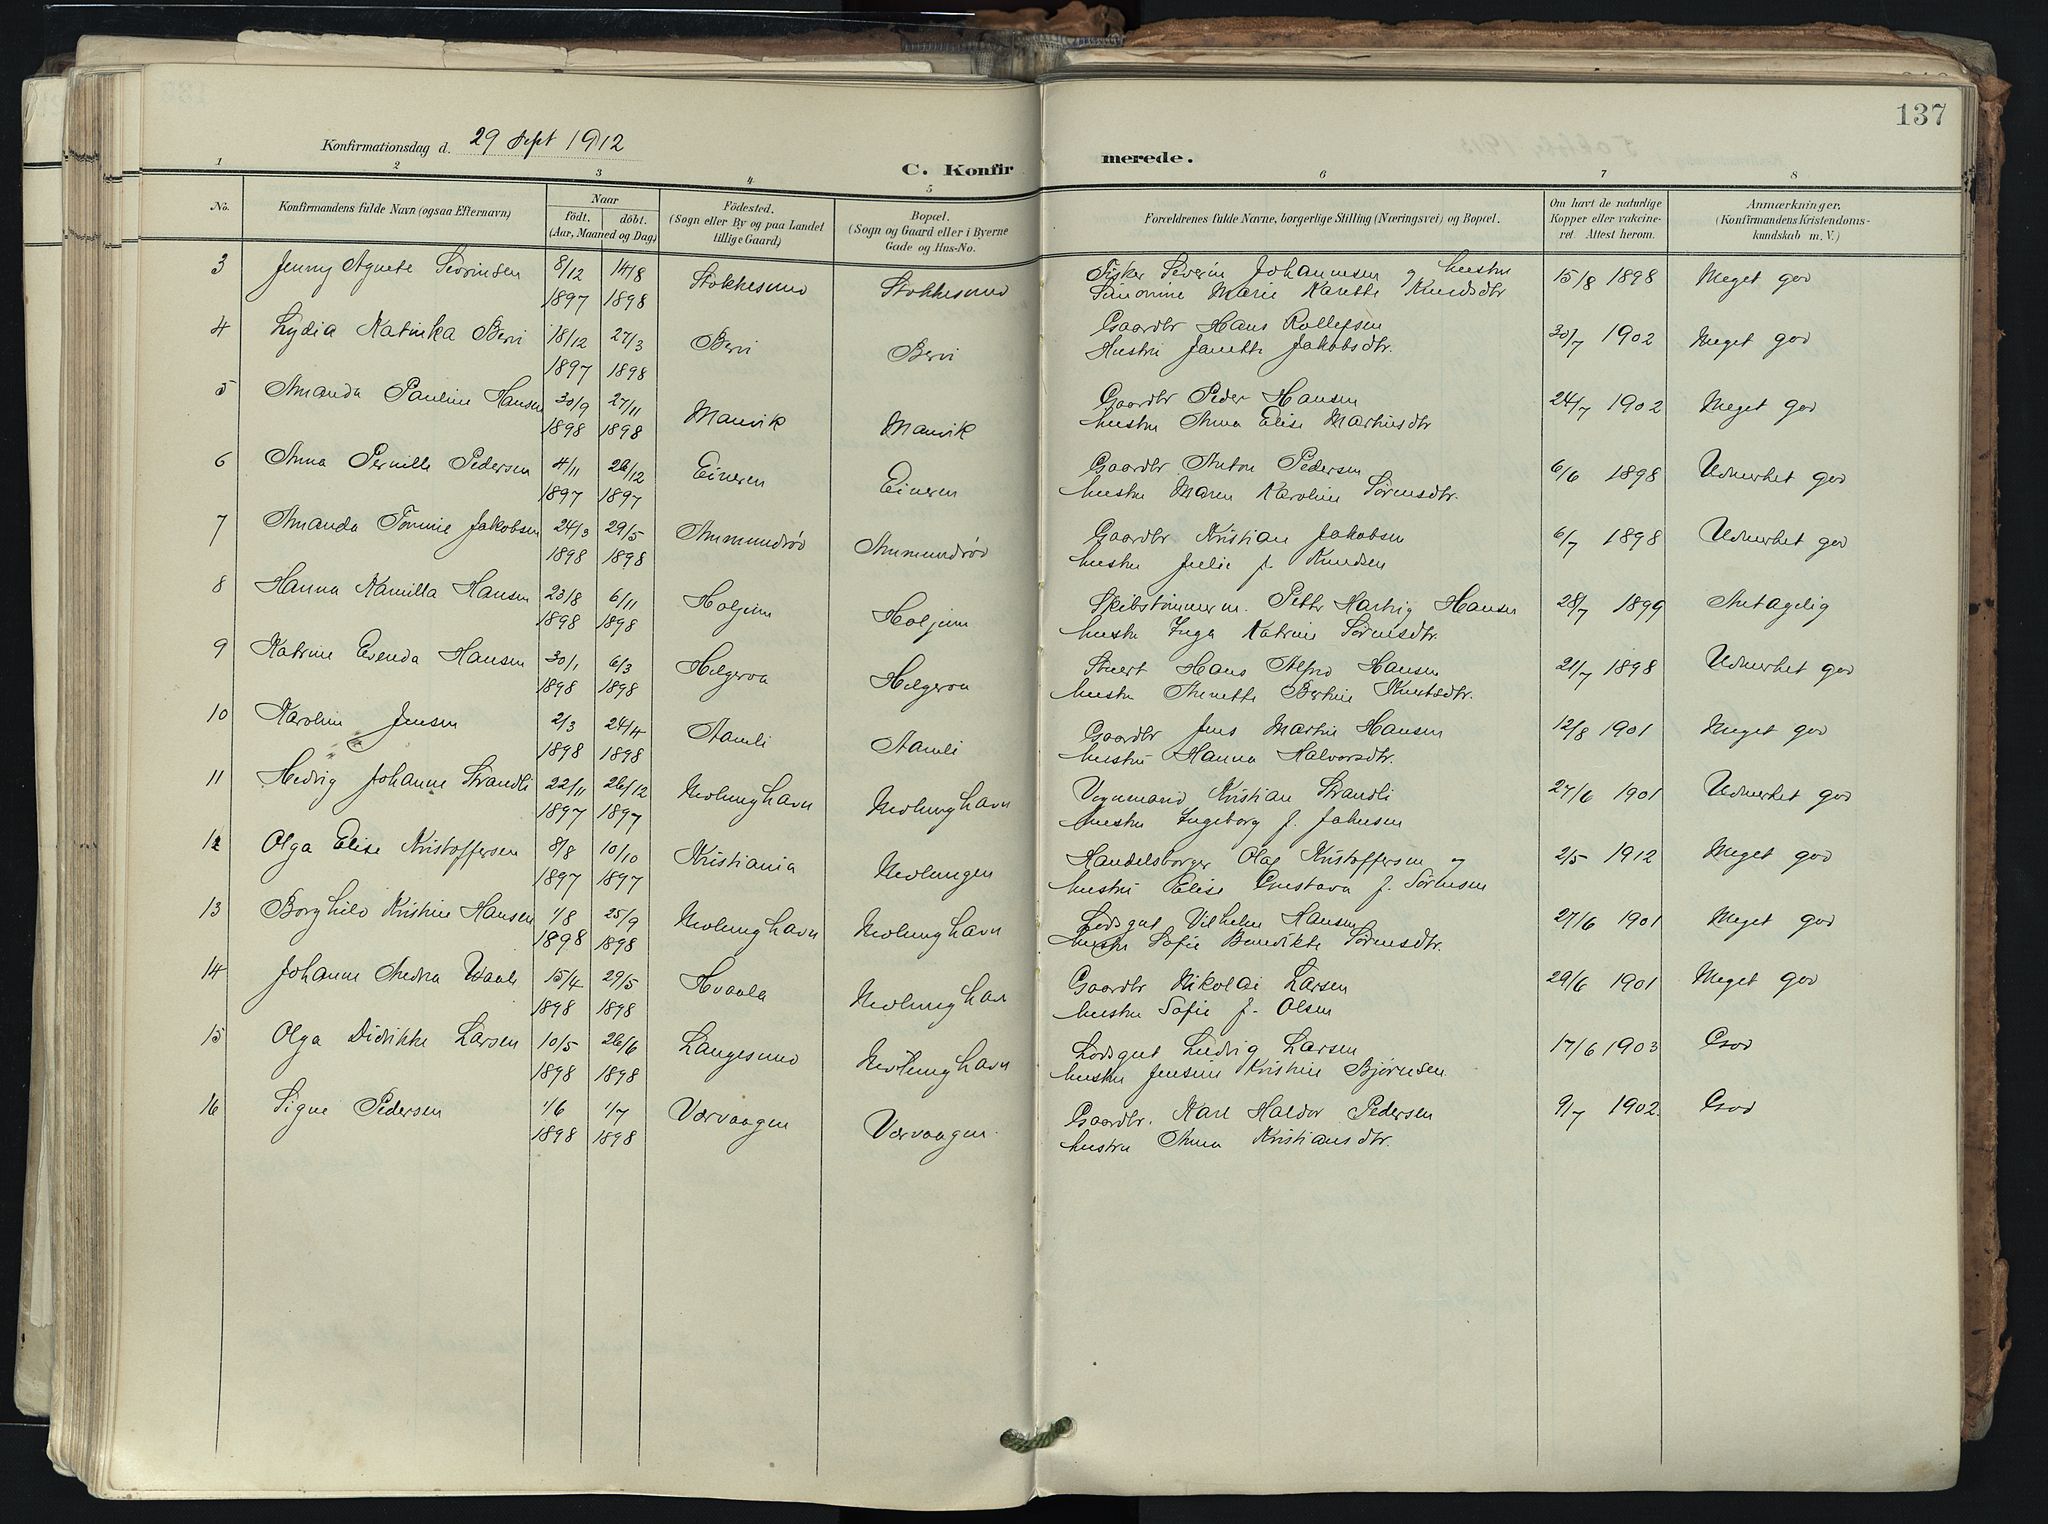 137
Konfirmationsdag d. 29 Sept 1912
C. Konfirmerede.
1 2 3 4 5 6 7 8
No. Konfirmandens fulde Navn (ogsaa Efternavn) Naar födt. döbt. (Aar, Maaned og Dag) Födested. (Sogn eller By og paa Landet tillige Gaard) Bopæl. (Sogn og Gaard eller i Byerne Gade og Hus-No. Forældrenes fulde Navne, borgerlige Stilling (Næringsvei) og Bopæl. Om havt de naturlige Kopper eller vakcineret. Attest herom. Anmærkninger. (Konfirmandens Kristendomskundskab m. V.)
3 Jenny Agnete Severinsen 8/12 14/8 Stokkesund Stokkesund Fisker Severin Johannesen og hustru 15/8 1898 Meget god
1897 1898 Simonine Marie Karette Knudsdtr
4 Lydia Katinka Bervi 18/12 27/3 Bervi Bervi Gaardbr Hans Rollefsen 30/7 1902 Meget god
1897 1898 Hustru Janette Jakobsdtr.
5 Amanda Pauline Hansen 30/9 27/11 Manvik Manvik Gaardbr Peder Hansen 24/7 1902 Meget god
1898 1898 hustru Anna Elise Martinsdtr
6 Anna Pernille Pedersen 4/11 26/12 Eineren Eineren Gaardbr Anton Pedersen 6/6 1898 Udmerket god
1897 1897 hustru Maren Karoline Sörensdtr.
7 Amanda Tomine Jakobsen 24/3 29/5 Ammundröd Ammundröd Gaardbr Kristian Jakobsen 6/7 1898 Udmerket god
1898 1898 hustru Julie f. Knudsen
8 Hanna Kamilla Hansen 23/8 6/11 Holjem Holjem Skibstömmerm. Petter Hartvig Hansen 28/7 1899 Antagelig
1898 1898 hustru Inga Katrine Sörensdtr.
9 Katrine Evenda Hansen 30/1 6/3 Helgeroa Helgeroa Stuert Hans Alfred Hansen 21/7 1898 Udmerket god
1898 1898 hustru Anette Bertine Knudsdtr.
10 Karoline Jensen 2/3 24/4 Aamli Aamli Gaardbr Jens Martin Hansen 12/8 1901 Meget god
1898 1898 hustru Hanna Halvorsdtr.
11 Hedvig Johanne Strandli 22/11 26/12 Nevlunghavn Nevlunghavn Vognmand Kristian Strandli 27/6 1901 Udmerket god
1897 1897 hustru Ingeborg f. Johnsen
12 Olga Elise Kristoffersen 8/8 10/10 Kristiania Nevlungen Handelsborger Olaf Kristoffersen og 2/5 1912 Meget god
1897 1897 hustru Elise Gustava f. Sörensen
13 Borghild Kristine Hansen 1/8 25/9 Nevlunghavn Nevlunghavn Lodsgut Vilhelm Hansen 27/6 1901 Meget god
1898 1898 hustru Sofie Benedikte Sörensdtr.
14 Johanne Andrea Waale 15/4 29/5 Hvaala Nevlunghavn Gaardbr Nikolai Larsen 29/6 1901 Meget god
1898 1898 hustru Sofie f. Olsen
15 Olga Didrikke Larsen 10/5 26/6 Langesund Nevlunghavn Lodsgut Ludvig Larsen 17/6 1903 God
1898 1898 hustru Jensine Kristine Bjørnsen
16 Signe Pedersen 1/6 1/7 Værvaagen Værvaagen. Gaardbr. Karl Haldor Pedersen 9/7 1902. God
1898 1898 hustru Anna Kristiansdtr.